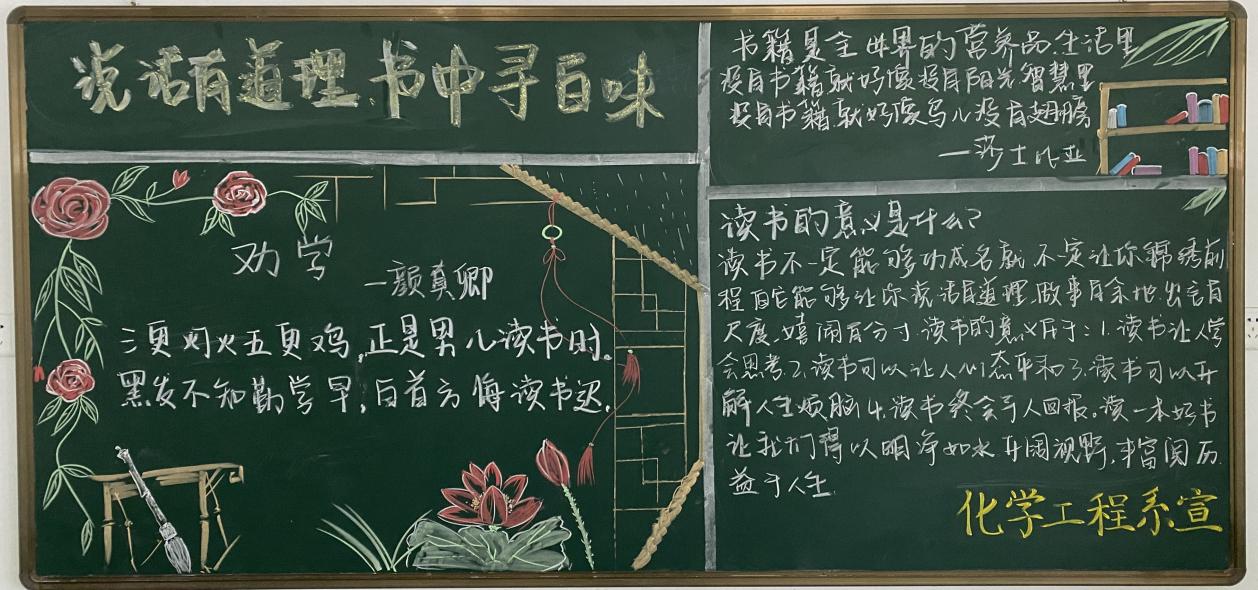 说话有道理 书中寻百味
劝学
—颜真卿
三更灯火五更鸡,正是男儿读书时。
黑发不知勤学早,白首方悔读书迟.
书籍是全世界的营养品.生活里
没有书籍就好像没有阳光智慧里
没有书籍就好像鸟儿没有翅膀
—莎士比亚
读书的意义是什么?
读书不一定能够功成名就,不一定让你锦绣前
程但它能够让你说话有道理,做事有余地.出言有
尺度,嬉闹有分寸.读书的意义在于:1.读书让人学
会思考.2.读书可以让人们态平和3.读书可以开
解人生烦脑4.读书终会予人回报.读一本好书
让我们得以明净如水开阔视野,丰富阅历
益于人生.
化学工程系宣